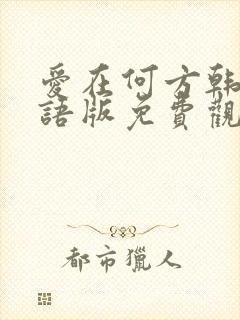 愛在何方韩
語版免費觀
都市獵人